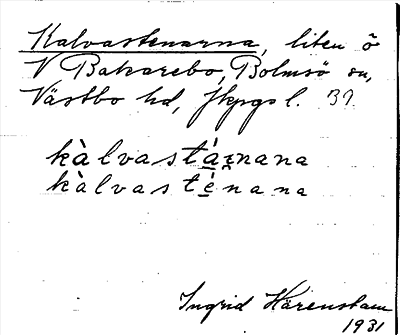 Kalvastenarna, liten ö
V Bakarebo, Bolmsö sn,
Västbo hd, Jkpgs l. 39
kàlvastá̱ṟnana
kàlvasté̱nana
Ingrid Härenstam
1931